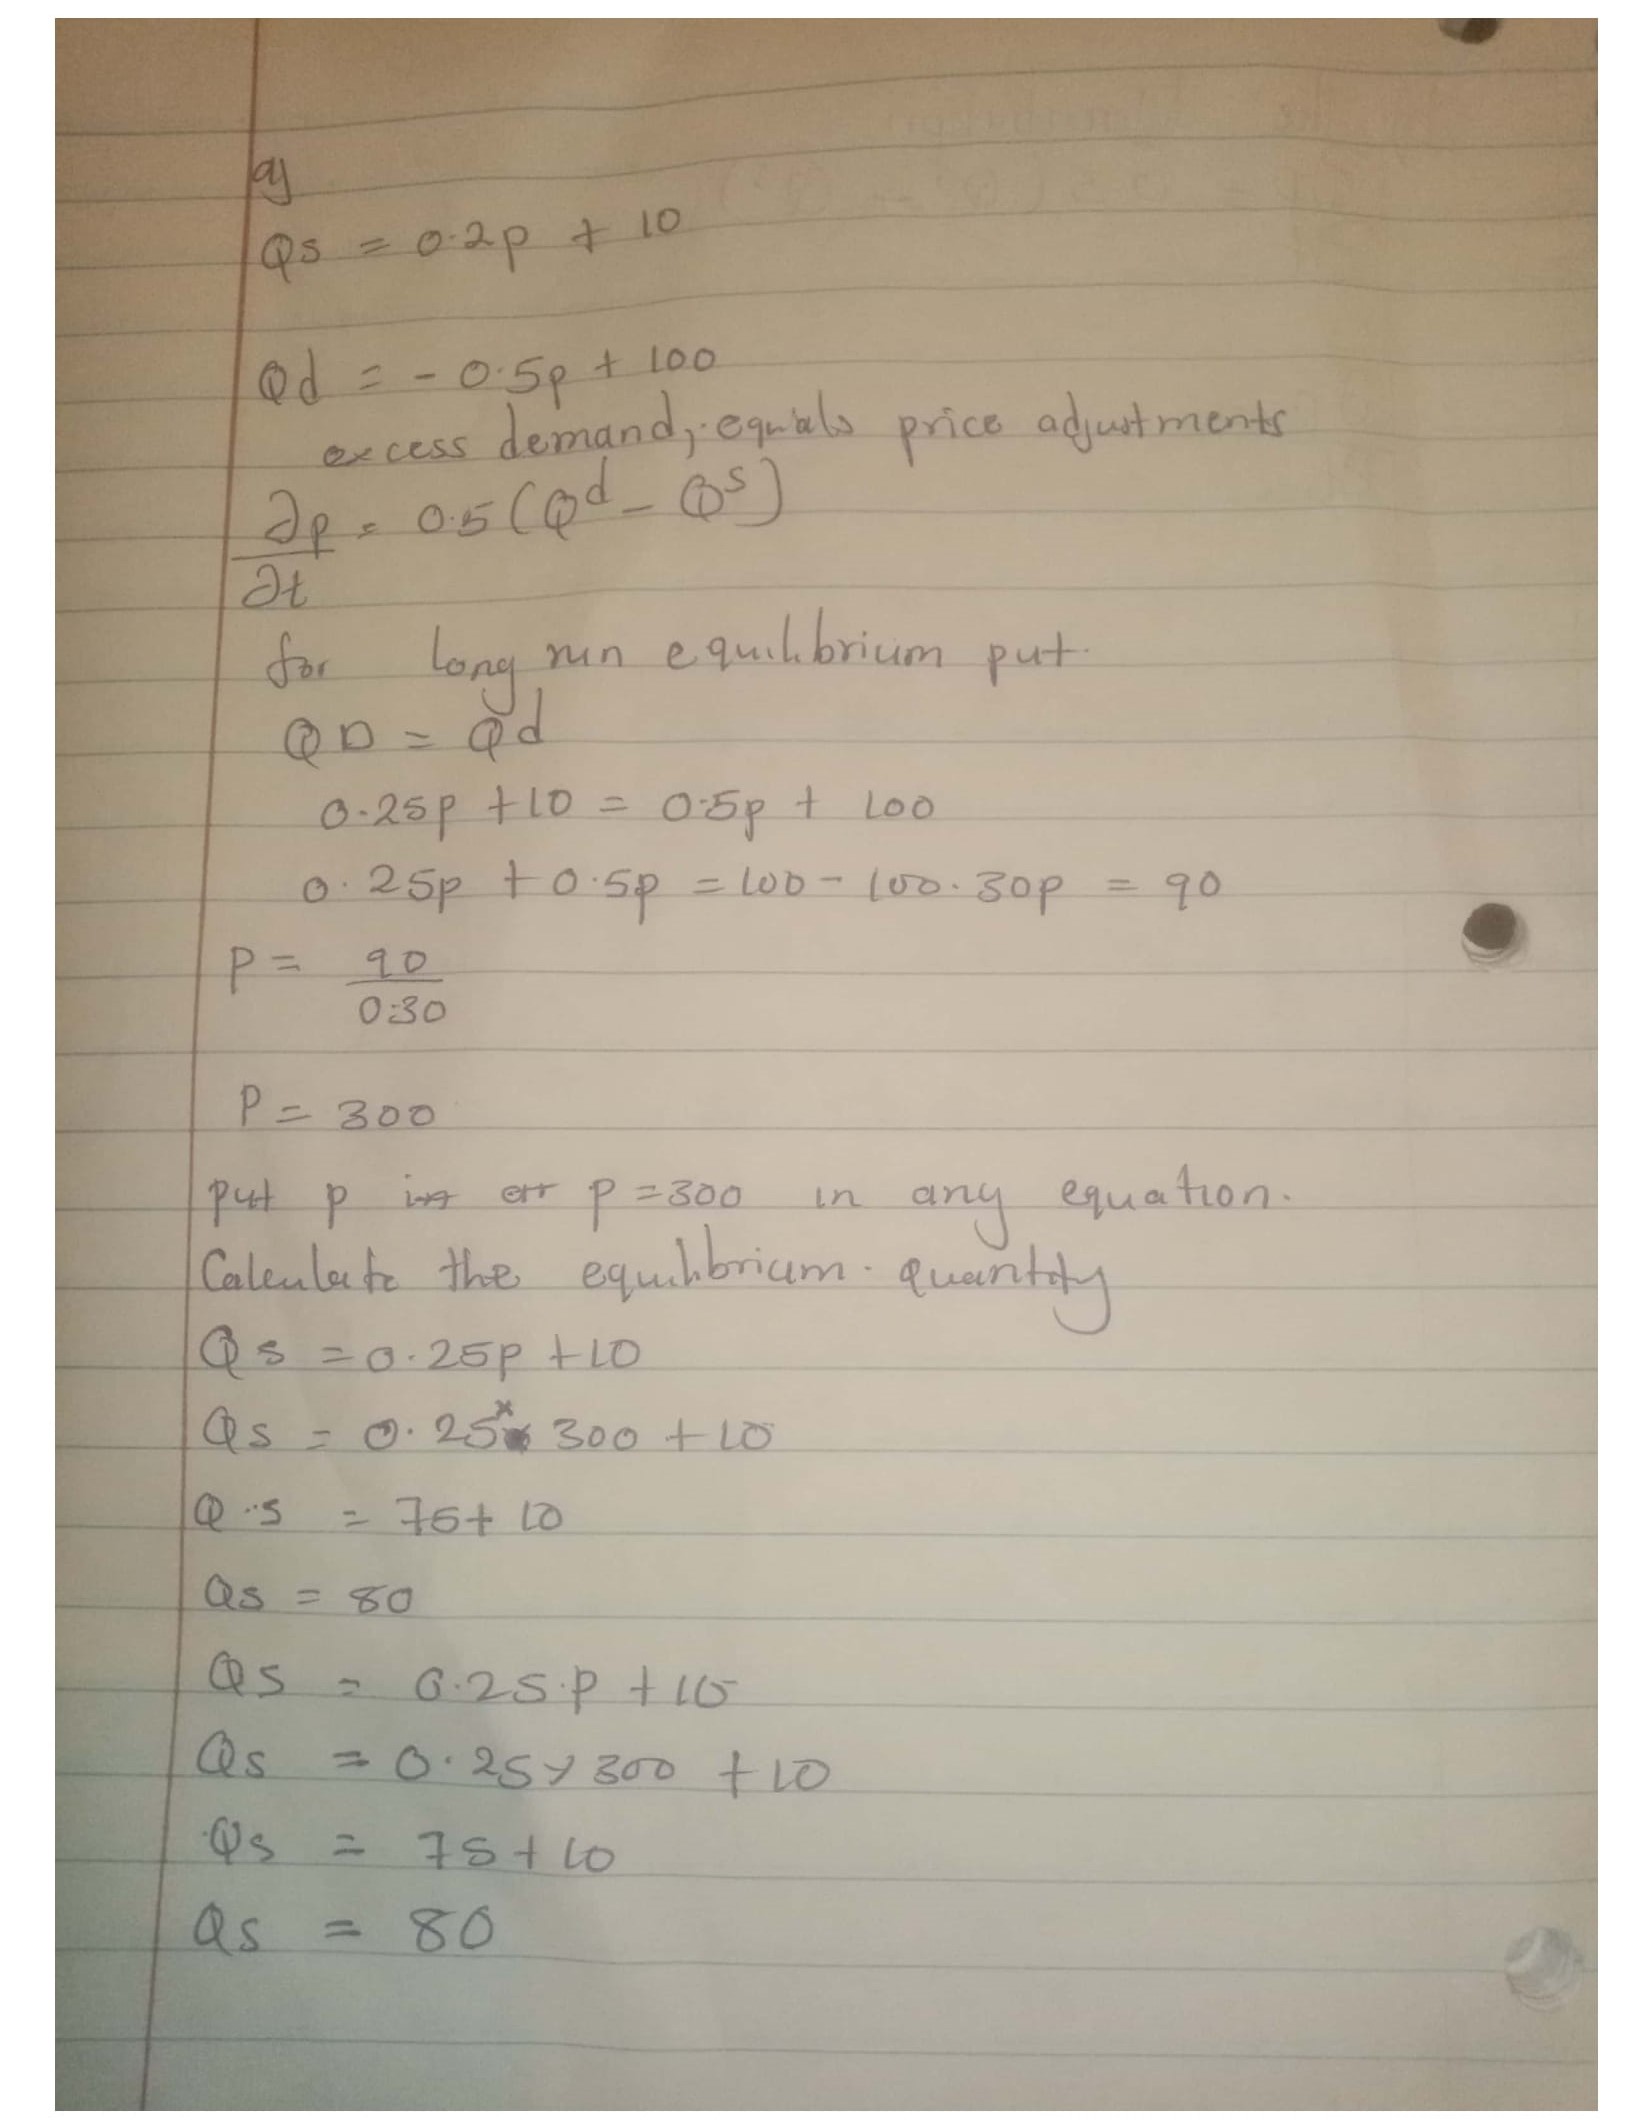 a)
Qs = 0.2p + 10
Qd = - 0.5p + 100
excess demand, equals price adjustments
∂p = 0.5 (Qd - Qs)
∂t
for long run equilibrium put.
QD = Qd
0.25p + 10 = 0.5p + 100
0.25p + 0.5p = 100 - 100.30p = 90
P = 90
0.30
P = 300
put p p = 300 in any equation.
Calculate the equilibrium quantity
Qs = 0.25p + 10
Qs = 0.25 x 300 + 10
Q.s = 75+ 10
Qs = 80
Qs = 0.25.p + 10
Qs = 0.25 x 300 + 10
Qs = 75 + 10
Qs = 80